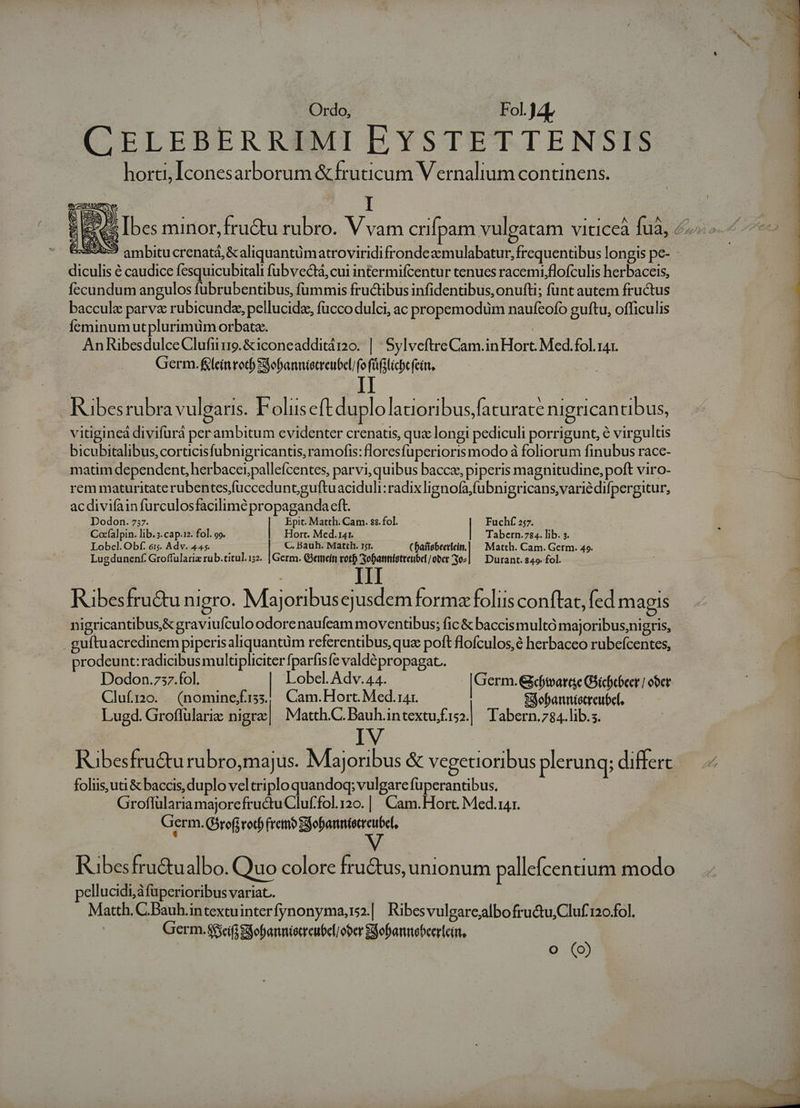 Ordo, Fol. 14
CELEBERRIMI EYSTETTENSIS
horti, Icones arborum & fruticum Vernalium continens.
I
RIbes minor, fructu rubro. Vvam crispam vulgatam viticeâ suâ,
ambitu crenatâ, & aliquantùm atroviridi fronde æmulabatur, frequentibus longis pe-
diculis è caudice sesquicubitali subvectâ, cui intermiscentur tenues racemi, flosculis herbaceis,
secundum angulos subrubentibus, summis fructibus insidentibus, onusti; sunt autem fructus
bacculæ parvæ rubicundæ, pellucidæ, succo dulci, ac propemodùm nauseoso gustu, officulis
seminum ut plurimùm orbatæ.
An Ribes dulce Clusii 119. & icone additâ 120. | Sylvestre Cam. in Hort. Med. fol. 141.
Germ. Klein roth Johannistreubel / so süßlicht sein.
II
Ribes rubra vulgaris. Foliis est duplo latioribus, saturatè nigricantibus,
vitigineâ divisurâ per ambitum evidenter crenatis, quæ longi pediculi porrigunt, è virgultis
bicubitalibus, corticis subnigricantis, ramosis: flores superioris modo à foliorum sinubus race-
matim dependent, herbacei, pallescentes, parvi, quibus baccæ, piperis magnitudine, post viro-
rem maturitate rubentes, succedunt, gustu aciduli: radix lignosa, subnigricans, variè dispergitur,
ac divisa in surculos facilimè propaganda est.
Dodon. 737. | Epit. Matth. Cam. 88. fol. | Fuchs. 257.
Cœsalpin. lib. 3. cap. 12. fol. 99. | Hort. Med. 141. | Tabern. 784. lib. 3.
Lobel. Obs. 615. Adv. 445. | C. Bauh. Matth. 151. (hañsbeerlein. | Matth. Cam. Germ. 49.
Lugdunens. Grossulariæ rub. titul. 132. | Germ. Gemein roth Johannistreubel / oder Jo= | Durant. 849. fol.
III
Ribes fructu nigro. Majoribus ejusdem formæ foliis constat, sed magis
nigricantibus, & graviusculo odore nauseam moventibus; sic & baccis multò majoribus, nigris,
gustu acredinem piperis aliquantùm referentibus, quæ post flosculos, è herbaceo rubescentes,
prodeunt: radicibus multipliciter sparsis se valdè propagat.
Dodon. 737. fol. | Lobel. Adv. 44. | Germ. Schwartze Gichtbeer / oder
Clus. 120. (nomine, f. 133. | Cam. Hort. Med. 141. | Johannistreubel.
Lugd. Grossulariæ nigræ | Matth. C. Bauh. in textu, f. 152. | Tabern. 784. lib. 3.
IV
Ribes fructu rubro, majus. Majoribus & vegetioribus plerunq; differt
foliis, uti & baccis, duplo vel triplo quandoq; vulgare superantibus.
Grossularia majore fructu Clus. fol. 120. | Cam. Hort. Med. 141.
Germ. Groß roth fremd Johannistreubel.
V
Ribes fructu albo. Quo colore fructus, unionum pallescentium modo
pellucidi, à superioribus variat.
Matth. C. Bauh. in textu inter synonyma, 152. | Ribes vulgare, albo fructu, Clus. 120. fol.
Germ. Weiß Johannistreubel / oder Johannsbeerlein.
o (o)